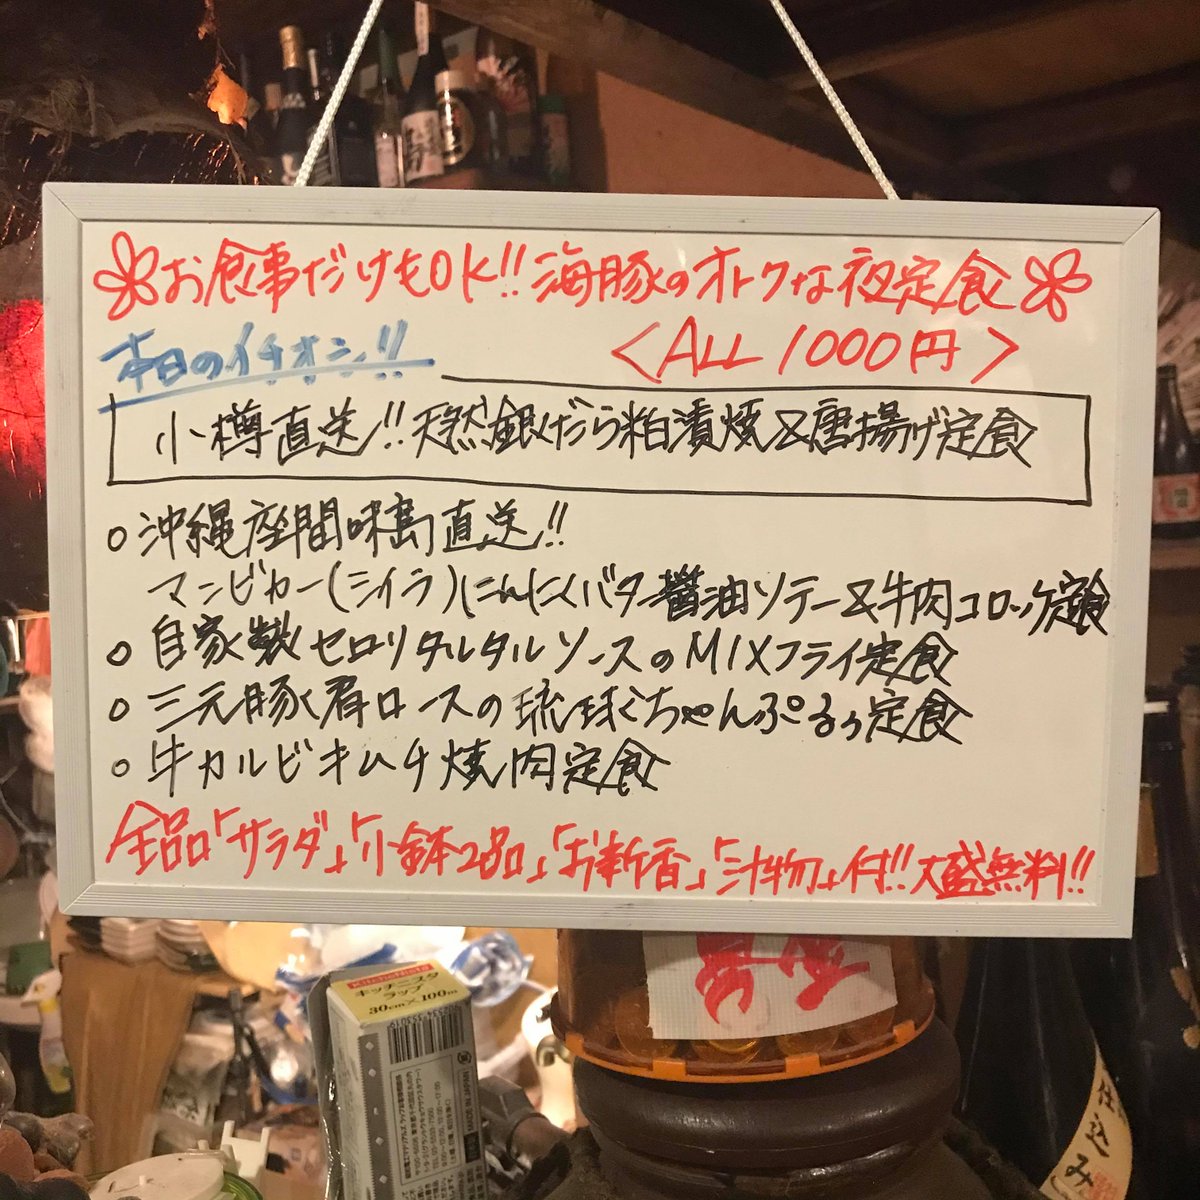 お食事だけもOK!!海豚のオトクな夜定食
<ALL 1000円>
本日のイチオシ!!
小樽直送!!天然銀だら粕漬焼&唐揚げ定食
○沖縄座間味島直送!!
マンビカー(シイラ)にんにくバター醤油ソテー&牛肉コロッケ定食
○自家製セロリタルタルソースのMIXフライ定食
○三元豚肩ロースの琉球ちゃんぷるぅ定食
○牛カルビキムチ焼肉定食
全品「サラダ」「小鉢2品」「お新香」「汁物」付!!大盛無料!!
KitchenNista
キッチニスタ
ラップ
30cm×100m
仕込み